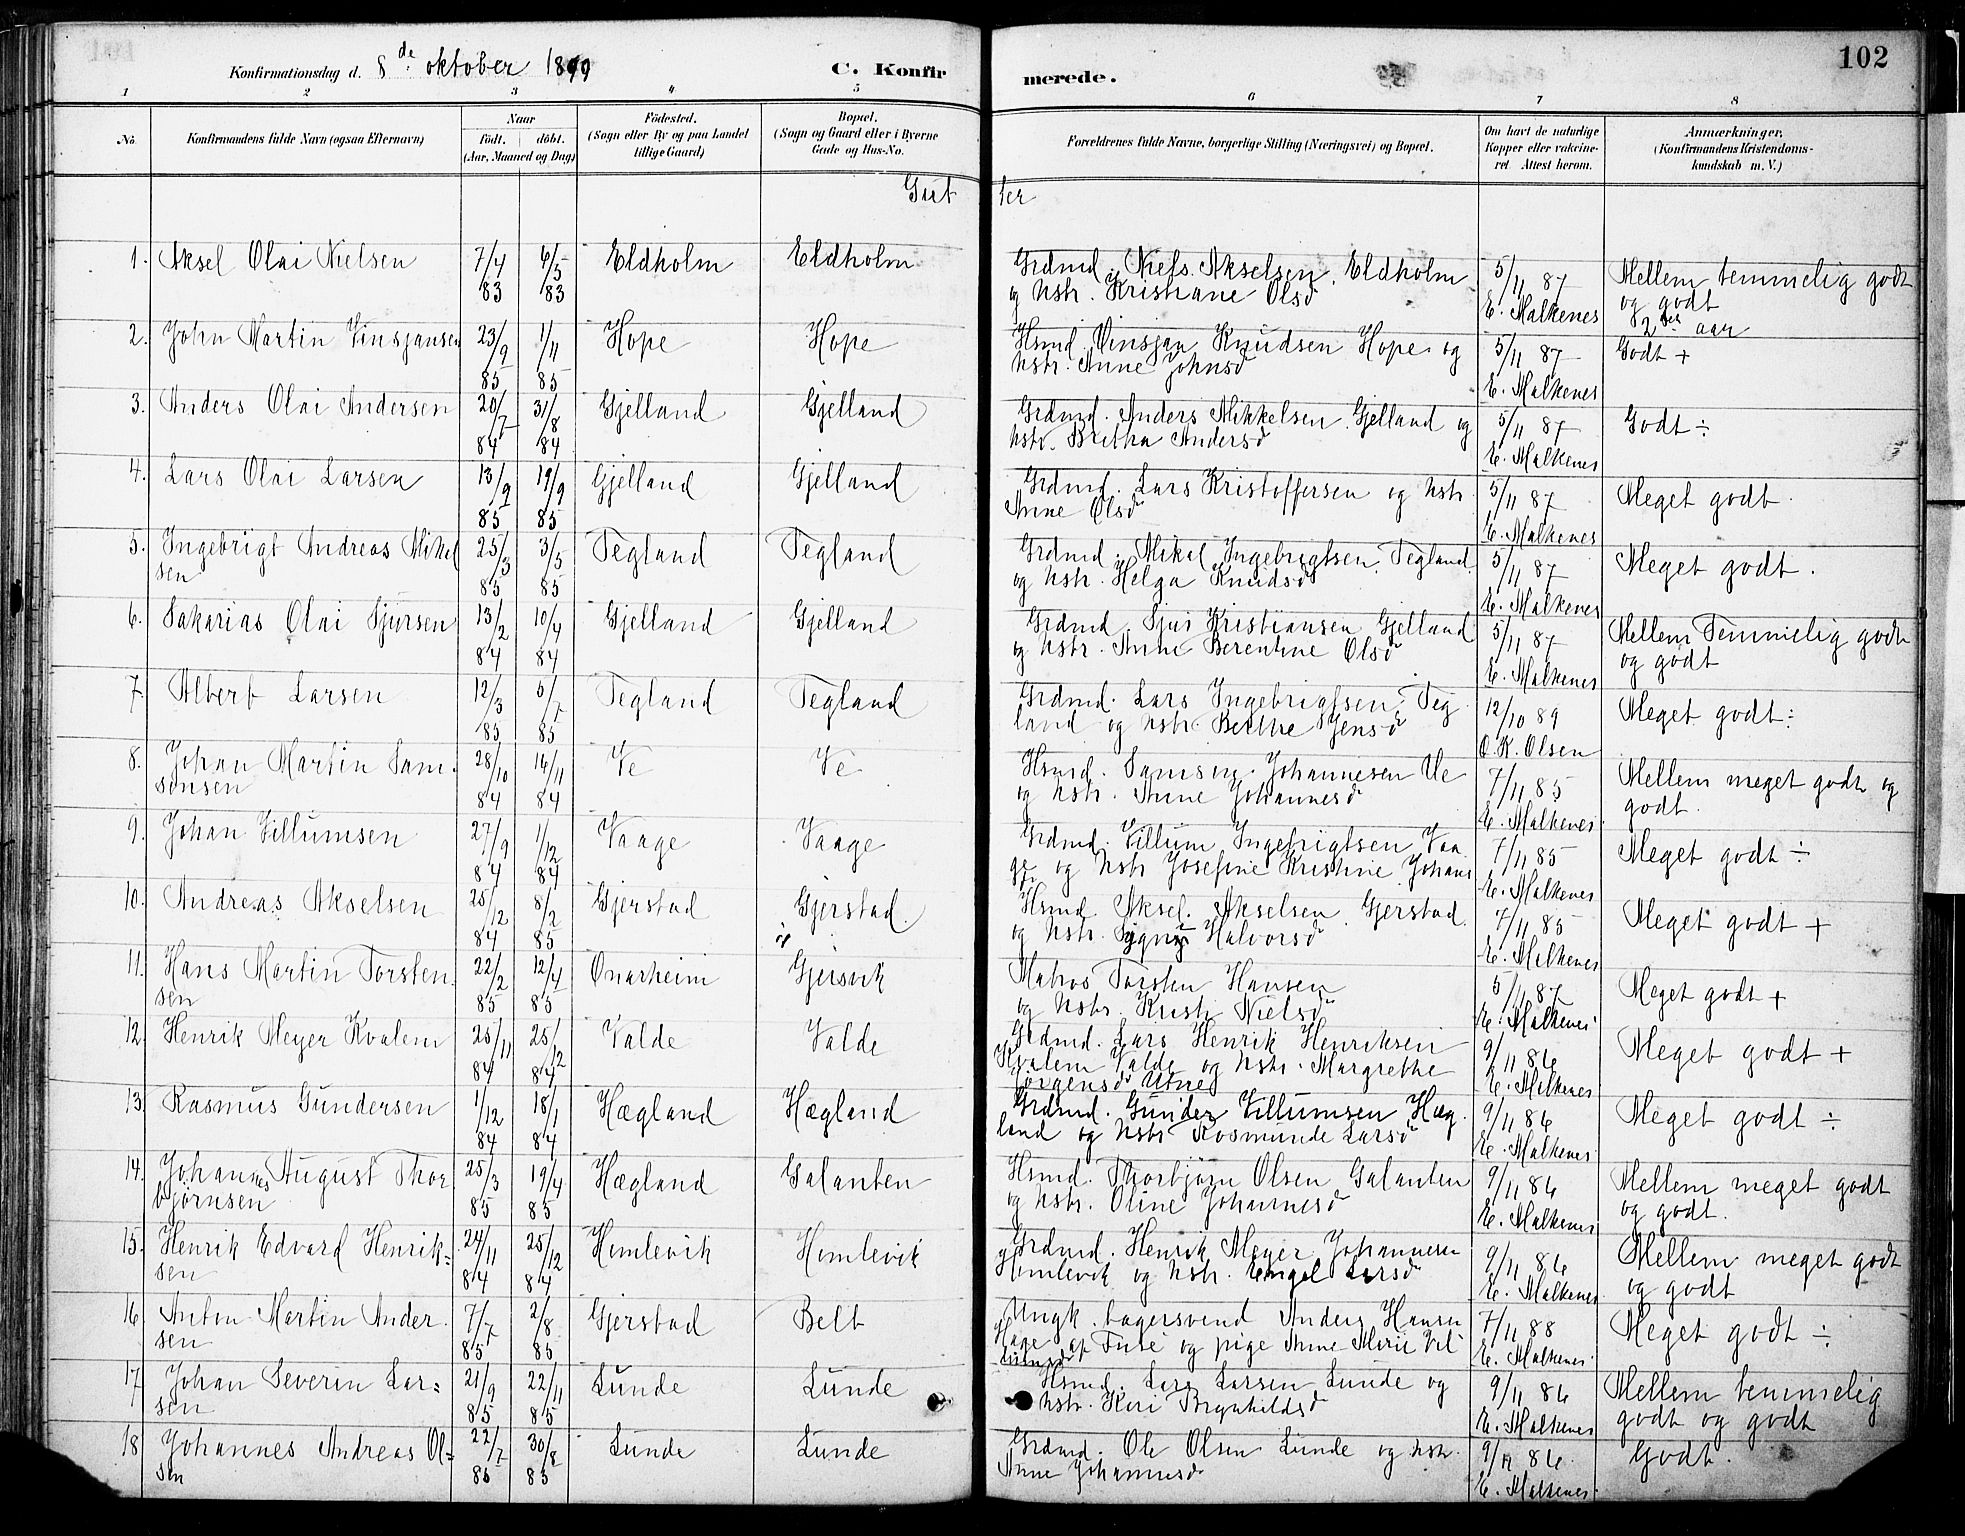 102
Konfirmationsdag d. 8de oktober 1899 C. Konfir merede.
1 2 3 4 5 6 7 8
No. Konfirmandens fulde Navn (ogsaa Efternavn) Naar födt. döbt. (Aar, Maaned og Dag) Födested. (Sogn eller By og paa Landet tillige Gaard) Bopæl. (Sogn og Gaard eller i Byerne Gade og Hus-No. Forældrenes fulde Navne, borgerlige Stilling (Næringsvei) og Bopæl. Om havt de naturlige Kopper eller vakcineret Attest herom. Anmærkninger, (Konfirmandens Kristendomskundskab m. V.)
Gut ter
1. Aksel Olai Nielsen 7/4 83 6/5 83 Eldholm Eldholm Grdmd. Niels Akselsen, Eldholm 5/11 87 Mellem temmelig godt
og hstr. Kristiane Olsd E. Malkenes og godt
2. John Martin Vinsjansen 23/9 85 1/11 85 Hope Hope Hsmd. Vinsjan Knudsen Hope og 5/11 87 2det aar Godt +
hstr. Anne Johnsd E. Malkenes
3. Anders Olai Andersen 20/7 84 31/8 84 Gjelland Gjelland Grdmd. Anders Mikkelsen Gjelland og 5/11 87 Godt ÷
hstr. Britha Andersd E. Malkenes
4. Lars Olai Larsen 13/9 85 19/9 85 Gjelland Gjelland Grdmd. Lars Kristoffersen og hstr. 5/11 87 Meget godt.
Anne Olsd E. Malkenes
5. Ingebrigt Andreas Mikal 25/3 85 3/5 85 Tegland Tegland Grdmd. Mikal Ingebrigtsen, Tegland 5/11 87 Meget godt.
sen og hstr. Helga Knudsd E. Malkenes
6. Sakarias Olai Sjursen 13/2 84 10/4 84 Gjelland Gjelland Grdmd. Sjur Kristiansen Gjelland 5/11 87 Mellem Temmelig godt
og hstr. Anne Berentine Olsd E. Malkenes og godt
7. Albert Larsen 12/3 85 5/7 85 Tegland Tegland Grdmd. Lars Ingebrigtsen, Teg 12/10 89 Meget godt ÷
land og hstr. Berthe Jensd O. K. Olsen
8. Johan Martin Sam- 28/10 84 16/11 84 Ve Ve Hsmd. Samson Johannesen Ve 7/11 85 Mellem meget godt og
sonsen og hstr. Anne Johannesd E. Malkenes godt.
9. Johan Villumsen 27/9 84 1/12 84 Vaage Vaage Grdmd. Villum Ingebrigtsen Vaa 7/11 85 Meget godt ÷
ge og hstr Josefine Kristine Johans E. Malkenes
10. Andreas Akselsen 25/12 84 8/2 85 Gjerstad Gjerstad. Hsmd Aksel Akselsen Gjerstad 7/11 85 Meget godt +
og hstr. Signy Halvorsd E. Malkenes
11. Hans Martin Torsten 22/2 85 12/4 85 Onarheim Gjersvik Matros Torsten Hansen 5/11 87 Meget godt +
sen og hstr. Kristi Nielsd E. Malkenes
12. Henrik Meyer Kvalem 25/11 84 25/12 84 Valde Valde Grdmd. Lars Henrik Henriksen 9/11 86 Meget godt +
Kvalem Valde og hstr. Margrethe E. Malkenes
Jørgensd Utne
13. Rasmus Gundersen 1/12 84 18/1 84 Hægland Hægland Grdmd. Gunder Villumsen Hæg 9/11 86 Meget godt ÷
land og hstr Rosmunde Larsd E. Malkenes
14. Johannes August Thor 25/3 85 19/4 85 Hægland Galanten Hsmd. Thorbjørn Olsen Galanten 9/11 86 Mellem meget godt
bjørnsen og hstr. Oline Johannesd E. Malkenes og godt.
15. Henrik Edvard Henrik- 24/11 84 25/12 84 Homlevik Homlevik Grdmd. Henrik Meyer Johannesen 9/11 86 Mellem meget godt
sen Homlevik og hstr. Engel Larsd E. Malkenes og godt
16. Anton Martin Ander 7/7 85 2/8 85 Gjerstad Belt Ungk. bagersvend Anders Hansen 7/11 88 Meget godt ÷
sen af Fuse og pige Anne Marie Vil E. Malkenes
lumsd
17. Johan Severin Lar- 21/9 85 22/11 85 Lunde Lunde Hsmd. Lars Larsen Lunde og 9/11 86 Mellem temmelig
sen hstr. Kari Brynhildsd E. Malkenes godt og godt
18. Johannes Andreas Ol- 22/7 85 30/8 85 Lunde Lunde Grdmd. Ole Olsen Lunde og hstr. 9/11 86. Godt.
sen Anne Johannesd E. Malkenes